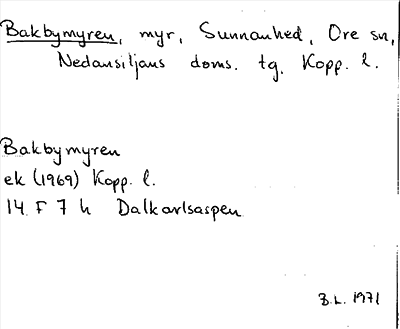 Bakbymyren, myr, Sunnanhed, Ore sn,
Nedansiljans doms. tg. Kopp. l.
Bakbymyren
ek (1969) Kopp. l.
14 F 7 h Dalkarlsaspen
B.L. 1971